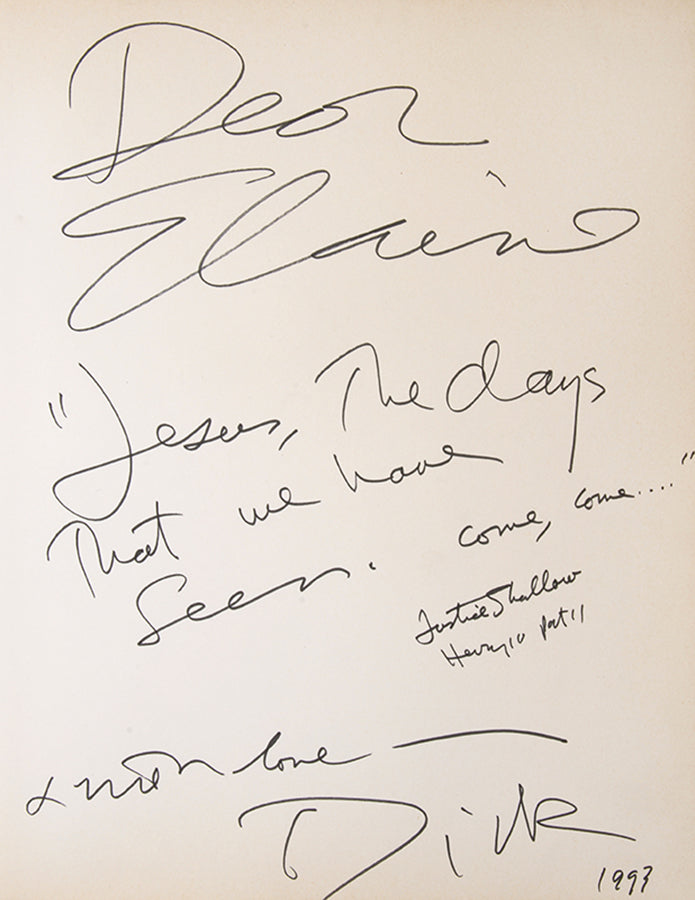 Dear
Elaine
"Jesus, The days
That we have
Seen. come, come...."
Justice Shallow
Henry IV Part II
& with love —
Dick
1993